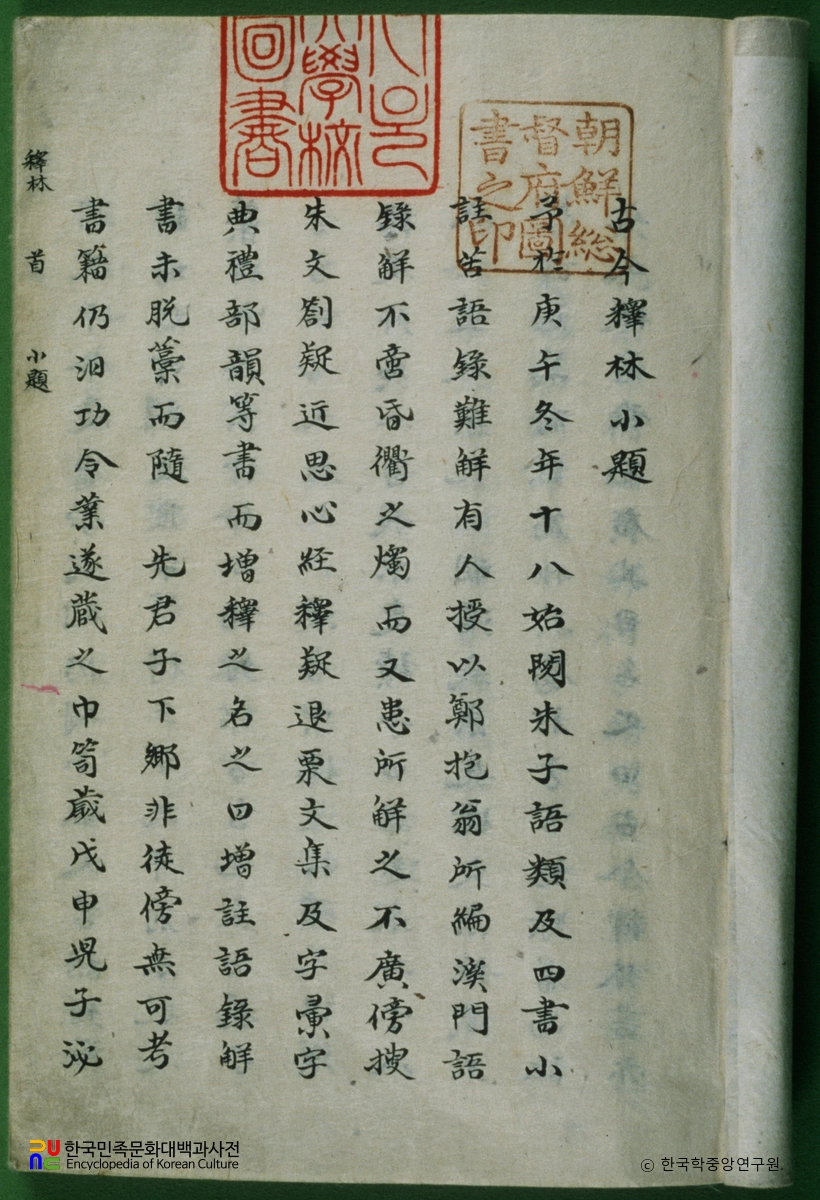 古今釋林小題
予於庚午冬年十八始閱朱子語類及四書小
註苦語錄難解有人授以鄭抱翁所編溪門語
錄解不啻昏衢之燭而又患所解之不廣傍搜
朱文劄疑近思心経釋疑退栗文集及字彙字
典禮部韻等書而增釋之名之曰增註語錄解
書未脱藁而隨 先君子下鄉非徒傍無可考
書籍仍汩功令業遂蔵之巾笥歲戊申児子泌
釋林 首 小題
朝鮮総
督府圖
書之印
學校
圖書
한국민족문화대백과사전
Encyclopedia of Korean Culture
© 한국학중앙연구원